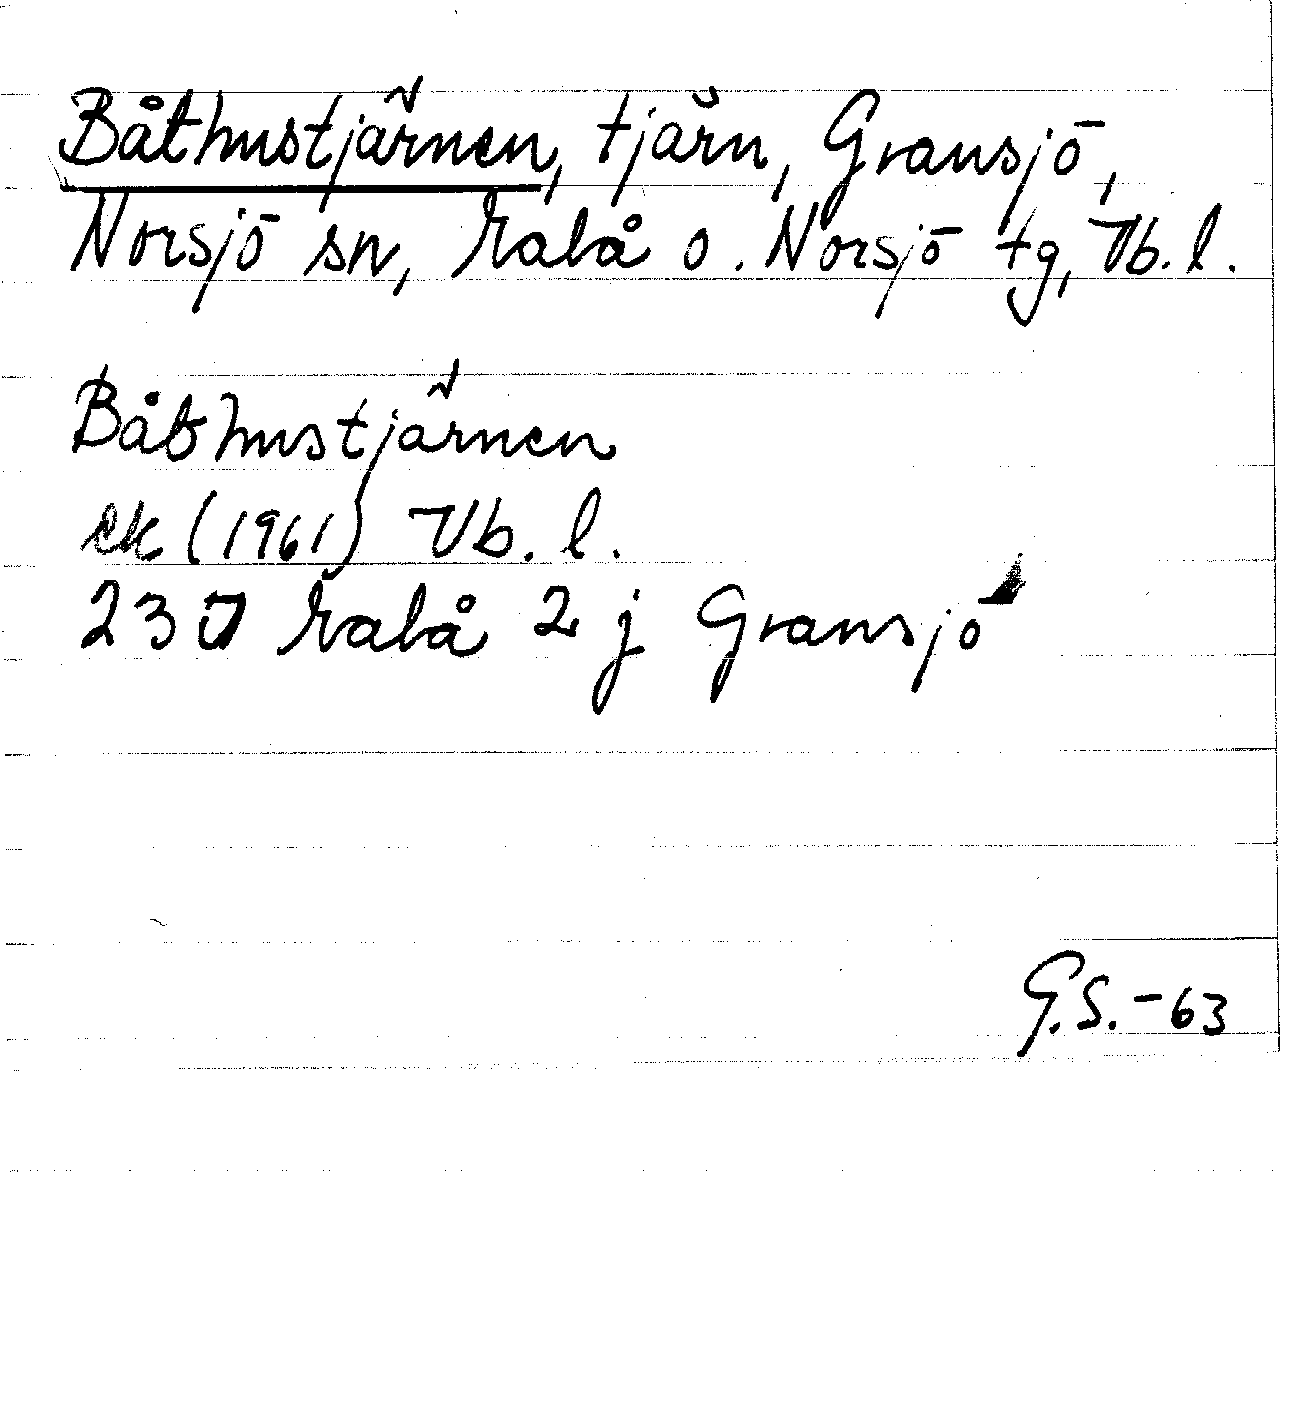 Båthustjärnen, tjärn, Gransjö,
Norsjö sn, Malå o. Norsjö tg, Vb. l.
Båthustjärnen
ek (1961) Vb. l.
23 J Malå 2 j Gransjö
G.S. - 63